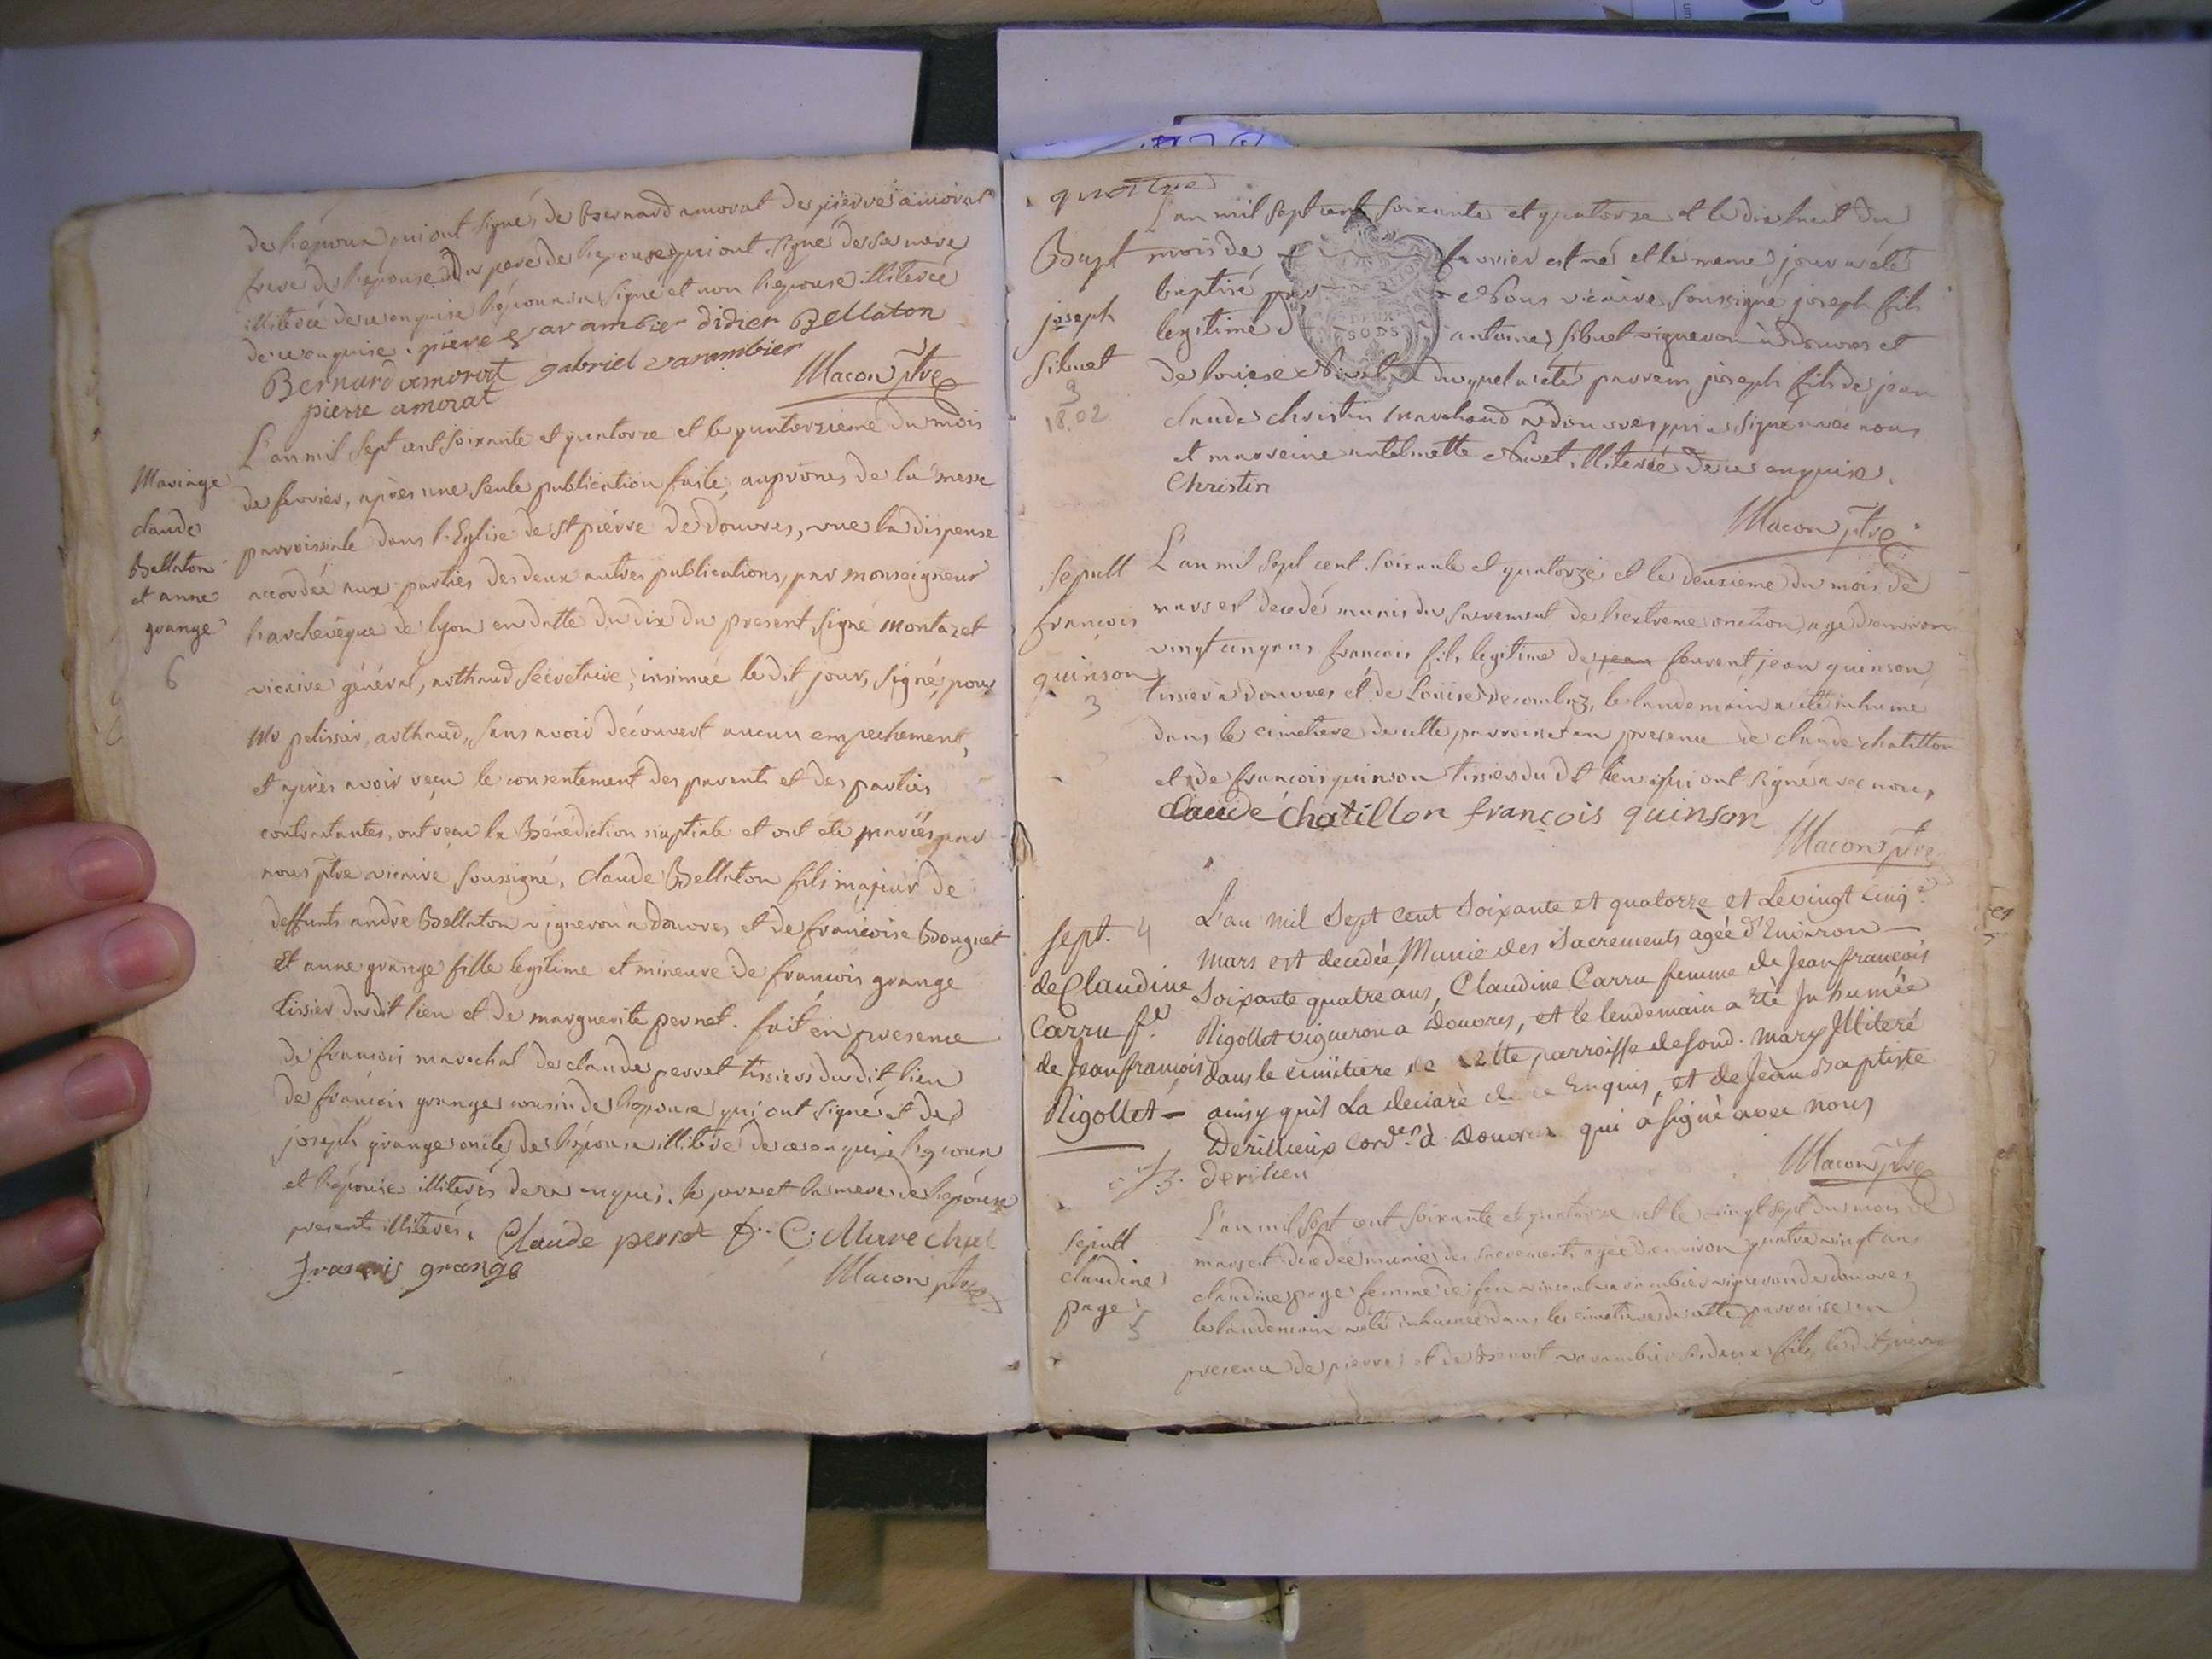 de l'epoux qui ont signés, de Bernard amorat de pierre amorat
frere de l'epouse du pere de l'epouse qui ont signé de sa mere
illiterée de ce enquise l'epoux a signé et non l'epouse illiterée
de ce enquise. pierre varambier didier Bellaton
Bernard amorat gabriel varambier
pierre amorat Macon ptre
L'an mil sept cent soixante et quatorze et le quatorzieme du mois
de fevrier, après une seule publication faite au prônes de la messe
parroissiale dans l'Eglise de St pierre de douvres, vue la dispense
accordée aux parties des deux autres publications, par monseigneur
l'archevêque de lyon en datte du dix du present, signé Montazet
vicaire général, arthaud secretaire, insinuée le dit jour, signé, pour
Mr pelissier, arthaud, sans avoir découvert aucun empechement,
et après avoir reçu le consentement des parents et des parties
contractantes, ont reçu la Bénédiction nuptiale et ont été mariés par
nous ptre vicaire soussigné, claude Bellaton fils majeur de
deffunts andré Bellaton vigneron a douvres et de francoise Bouguet
Et anne grange fille legitime et mineure de francois grange
tissier du dit lieu et de marguerite pernet. fait en presence
de francois marechal de claude perret tissiers du dit lieu
de francois grange cousin de l'epouse qui ont signé et de
joseph grange oncle de l'epouse illiteré de ce enquis l'epoux
et l'epouse illiterés de ce enquis. le pere et la mere de l'epoux
presents illiterés. Claude perret f. C. Marechal
francois grange Macon ptre
Mariage
claude
Bellaton
et anne
grange
6
quatre
L'an mil sept cent soixante et quatorze et le dix huit du
mois de fevrier est né et le meme jour a été
baptisé par Nous vicaire soussigné joseph fils
legitime d antoine sibuet vigneron à douvres et
de louise duquel a eté parrein joseph fils de jean
claude christin marchand a douvres qui a signé avec nous
et marreine antelmette illiterée de ce enquise.
Christin
Macon ptre
Bapt
joseph
sibuet
3
18.02
L'an mil sept cent soixante et quatorze et le deuxieme du mois de
mars est decedé munis du sacrement de l'extreme onction, agé d'environ
vingt cinq ans francois fils legitime de jean feu vent jean quinson
tissier a douvres et de Louise decomlaz, le landemain a été inhumé
dans le cimetiere de cette parroisse en presence de claude chatillon
et de francois quinson tissiers du dit lieu qui ont signé avec nous,
claude chatillon françois quinson
Macon ptre
sepult
francois
quinson
3
L'an Mil Sept Cent Soixante et quatorze et Le vingt Cinq
Mars est decedée, Munie des Sacrements agée d'Environ
Soixante quatre ans, Claudine Carru femme de Jean françois
Rigollet vigneron a Douvres, et le lendemain a eté Inhumée
dans le cimitiere de cette parroisse de son d. mary Jlliteré
ainsy quil La declaré de ce Enquis, et de Jean Baptiste
Derillieux cord. à Douvres qui a signé avec nous
derilieu
Macon ptre
sept. 4
de Claudine
Carru fe
de Jean francois
Rigollet
L'an mil sept cent soixante et quatorze et le vingt sept du mois de
mars est decedée munie des sacrements agée d'environ quatre vingt ans
claudine page femme de feu vincent varambier vigneron de douvres
le landemain a été inhumée dans le cimetiere de cette parroisse en
presence de pierre et de Benoit varambier ses deux fils le dit pierre
sepult
claudine
page
5